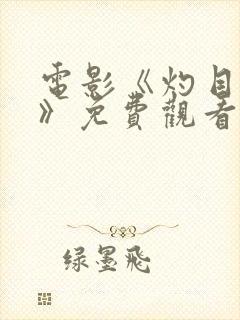 電影《灼目
》免費觀看
绿墨飛